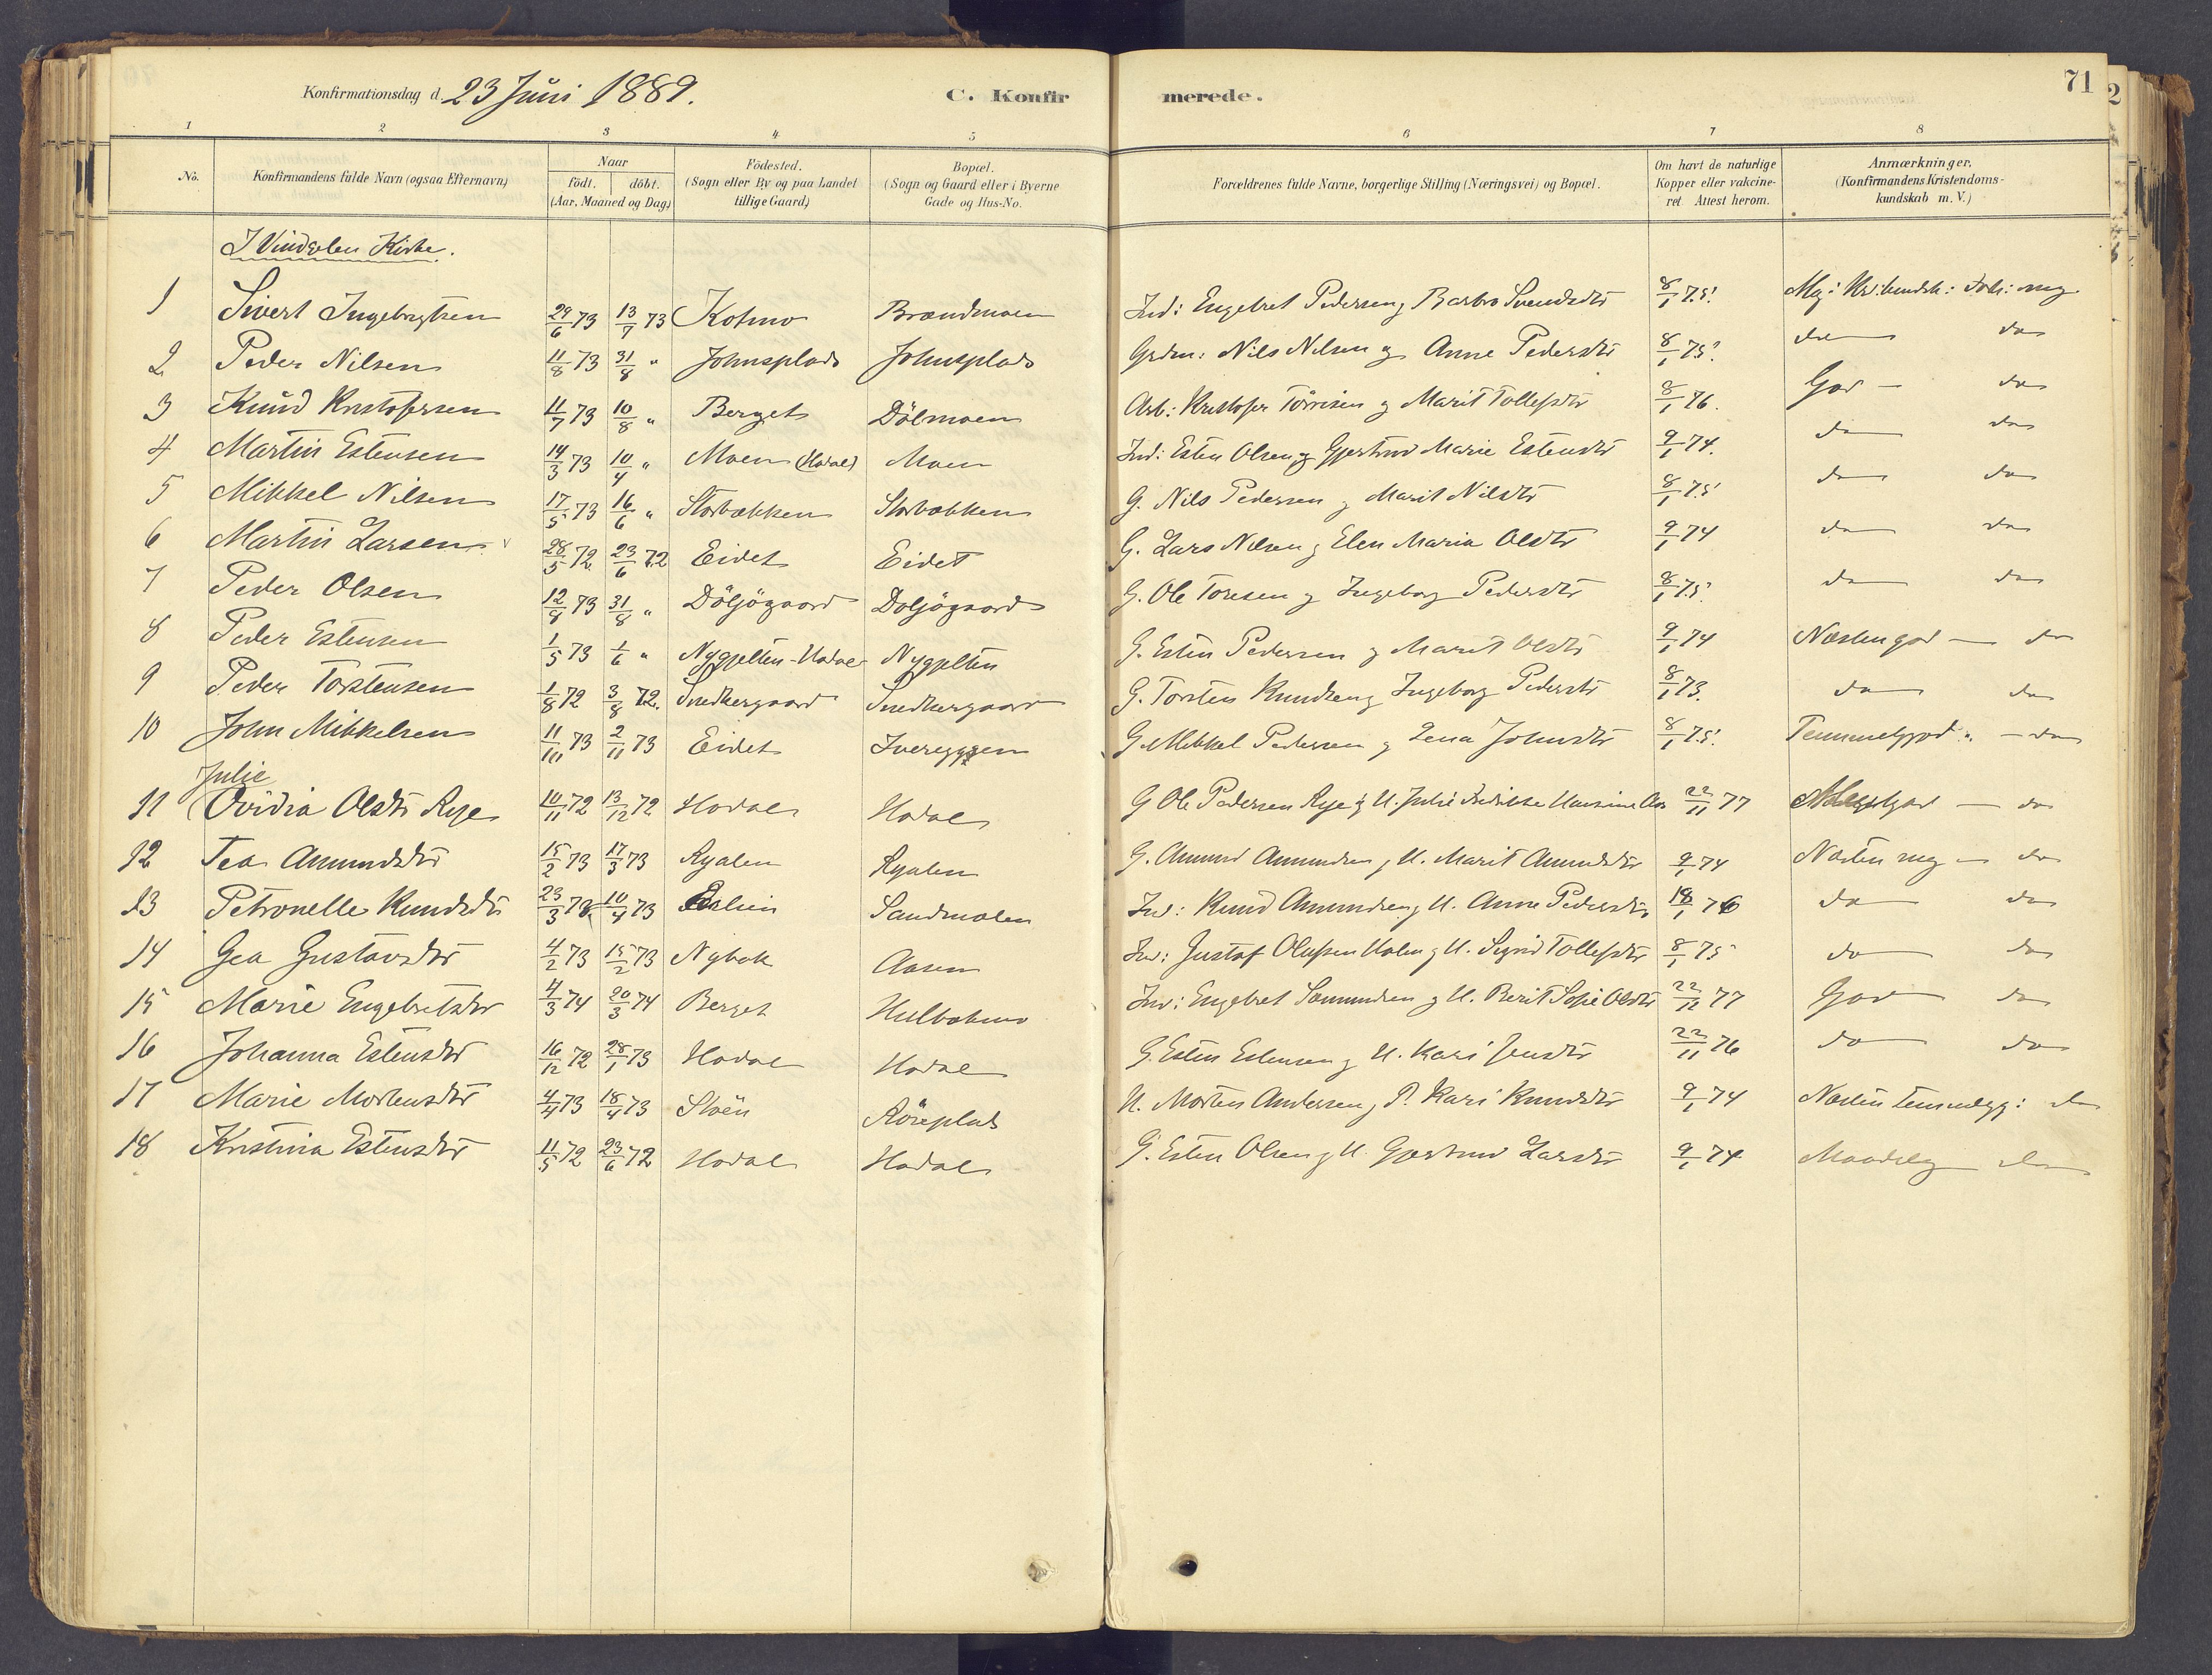 Konfirmationsdag d. 23 Juni 1889. C. Konfirmerede. 71
1 2 3 4 5 6 7 8
No. Konfirmandens fulde Navn (ogsaa Efternavn) Naar födt. döbt. (Aar, Maaned og Dag) Födested. (Sogn eller By og paa Landet tillige Gaard) Bopæl. (Sogn og Gaard eller i Byerne Gade og Hus-No. Forældrenes fulde Navne, borgerlige Stilling (Næringsvei) og Bopæl. Om havt de naturlige Kopper eller vakcineret Attest herom. Anmærkninger, (Konfirmandens Kristendomskundskab m.V.)
I Vindgelen Kirke.
1 Sivert Ingebrigtsen 29/6 73 13/7 73 Kotmo Brændmoen Ind: Engebret Pedersen og Barbro Svendsdtr 8/1 75. Meg:
2 Peder Nilsen 11/8 73 31/8 " Johnsplads Johnsplads Grdm: Nils Nilsen og Anne Pedersdtr 8/1 75. do do
3 Knud Kristofersen 11/7 73 10/8 " Berget Dölmoen Arb: Kristofer Törrisen og Marit Tollefsdtr 8/1 76. God — do
4 Martin Estensen 14/3 73 10/4 " Moen (Hodal) Moen Ind: Esten Olsen og Gjertrud Marie Estensdtr 9/1 74. do do
5 Mikkel Nilsen 17/5 73 16/6 " Storbækken Storbækken G. Nils Pedersen og Marit Nilsdtr 8/1 75 do do
6 Martin Larsen 28/5 72 23/6 72 Eidet Eidet G. Lars Nilsen og Elen Maria Olsdtr 9/1 74 do do
7 Peder Olsen 12/8 73 31/8 " Döljögaard Doljögaard G. Ole Toresen og Ingeborg Pedersdtr 8/1 75 do do
8 Peder Estensen 1/5 73 1/6 " Nygjelten-Hodal Nygjelten G. Esten Pedersen og Marit Olsdtr 9/1 74 Næsten god — do
9 Peder Torstensen 1/8 72 3/8 72. Snedkergaard Snedkergaard G. Torsten Knudsen og Ingeborg Pedersdtr 8/1 73. do do
10 John Mikkelsen 11/10 73 2/11 73 Eidet Ivereggen G. Mikkel Pedersen og Lena Johnsdtr 8/1 75. Temmelig god — do
Julie
11 Ovidia Olsdtr Rye 10/11 72 13/12 72 Hodal Hodal G Ole Pedersen Rye og H. Julie 22/11 77 — do
12 Tea Amundsdtr 15/2 73 17/3 73 Ryalen Ryalen G. Amund Amundsen og H. Marit Amundsdtr 9/1 74 Næsten meg — do
13 Petronelle Knudsdtr 23/3 73 10/4 73 Sandmolen Ind: Knud Amundsen og H. Anne Pedersdtr 18/1 76 do do
14 Gea Gustavsdtr 4/2 73 15/2 73 Nybak Aasen Ind: Gustaf Olufsen Holm og H. Sigrid Tollefsdtr 8/1 75 do do
15 Marie Engebretsdtr 4/3 74 20/3 74 Berget Ind: Engebret Samundsen og H. Berit Sofie Olsdtr 22/11 77 God do
16 Johanna Estensdtr 16/12 72 28/1 73 Hodal Hodal G. Esten Estensen og H. Kari Jensdtr 22/11 76 do do
17 Marie Mortensdtr 4/4 73 18/4 73 Röseplads Morten Andersen og P. Kari Knudsdtr 9/1 74 Næsten temmelig g: do
18 Kristina Estensdtr 11/5 72 23/6 72 Hodal Hodal G. Esten Olsen og H. Gjertrud Larsdtr 9/1 74 Maadelig do